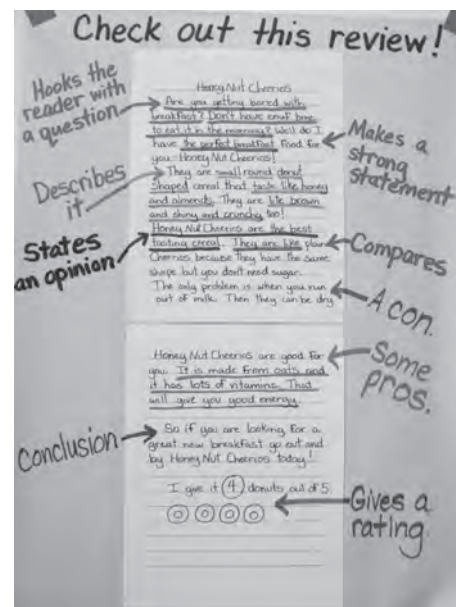 Check out this review!
Hooks the
reader with
a question
Describes
it
States
an opinion
Conclusion
Honey Nut Cheerios
Are you getting bored with
breakfast? Don't have enuf time
to eat it in the morning? Well do I
have the perfect breakfast food for
you-Honey Nut Cheerios!
They are small round donut
shaped cereal that taste like honey
and almonds. They are lite brown
and shiny and crunchy too!
Honey Nut Cheerios are the best
tasting cereal. They are like plain
Cheerios because they have the same
shape but you don't need sugar.
The only problem is when you run
out of milk. Then they can be dry.
Honey Nut Cheerios are good for
you. It is made from oats and
it has lots of vitamins. That
will give you good energy.
So if you are looking for a
great new breakfast go out and
by Honey Nut Cheerios today!
I give it 4 donuts out of 5
Makes a
strong
statement
Compares
A con.
Some
pros.
Gives a
rating.